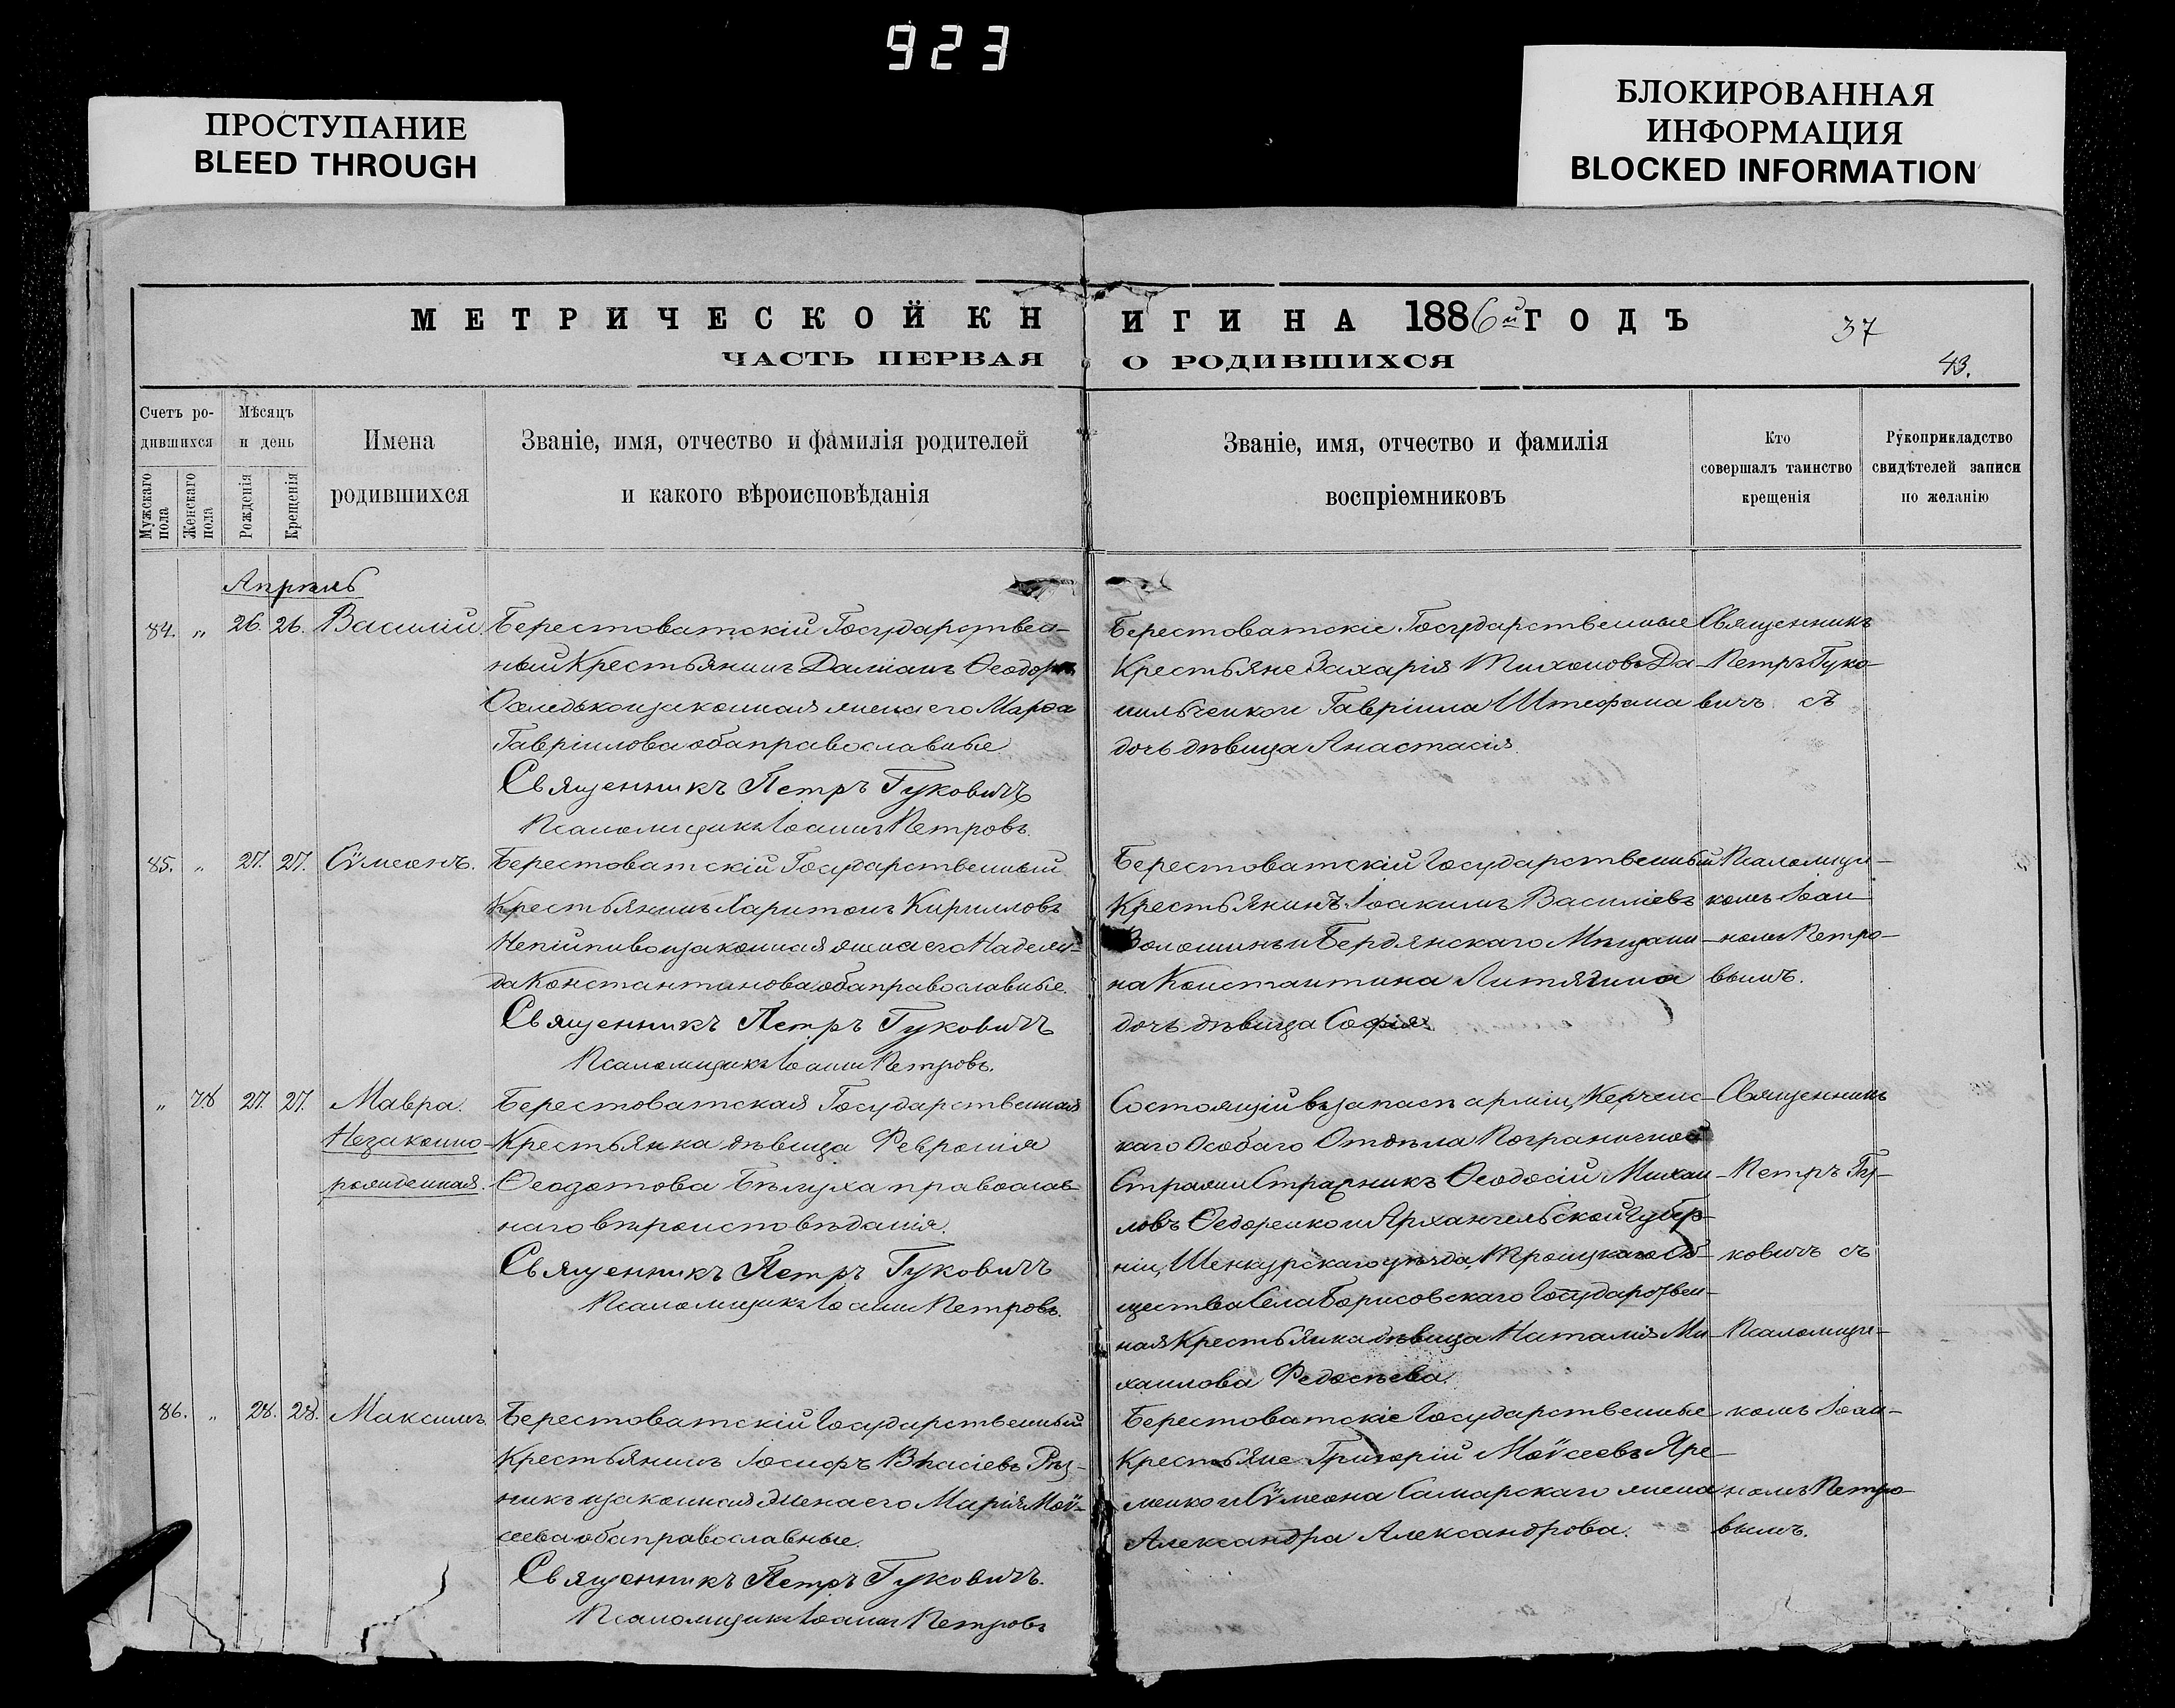 923
ПРОСТУПАНИЕ
BLEED THROUGH
БЛОКИРОВАННАЯ
ИНФОРМАЦИЯ
BLOCKED INFORMATION
МЕТРИЧЕСКОЙ КНИГИ НА 1886й ГОДЪ
37
ЧАСТЬ ПЕРВАЯ О РОДИВШИХСЯ
43.
Счетъ ро-
дившихся
Мужскаго пола
Женскаго пола
Мѣсяцъ
и день
Рожденія
Крещенія
Имена
родившихся
Званіе, имя, отчество и фамилія родителей
и какого вѣроисповѣданія
Званіе, имя, отчество и фамилія
воспріемниковъ
Кто
совершалъ таинство
крещенія
Рукоприкладство
свидѣтелей записи
по желанію
Апрѣль
84. „ 26. 26. Василій
Берестоватскій Государствен-
ный Крестьянинъ Даміанъ Ѳеодоровъ
и законная жена его Марѳа
Гавріилова оба православные
Священникъ Петръ Гуковичъ
Псаломщикъ Іоаннъ Петровъ.
Берестоватскіе Государственные
Крестьяне Захарія Тихоновъ Да-
нильченко и Гавріила Штефана
дочь дѣвица Анастасія.
Священникъ
Петръ Гуко-
вичъ съ
85. „ 27. 27. Сѵмеонъ.
Берестоватскій Государственный
Крестьянинъ Харитонъ Кирилловъ
Непійпиво и законная жена его Надеж-
да Константинова оба православные.
Священникъ Петръ Гуковичъ
Псаломщикъ Іоаннъ Петровъ.
Берестоватскій Государственный
Крестьянинъ Іоакимъ Василіевъ
Волошинъ и Бердянскаго Мѣщани-
на Константина Литягина
дочь дѣвица Софія.
Псаломщи-
комъ Іоан-
номъ Петро-
вымъ.
„ 78 27. 27. Мавра.
Незаконно-
рожденная.
Берестоватская Государственная
Крестьянка дѣвица Февронія
Ѳеодотова Бѣлуха православ-
наго вѣроисповѣданія.
Священникъ Петръ Гуковичъ
Псаломщикъ Іоаннъ Петровъ.
Состоящій въ запасѣ арміи, Керченс-
каго Особаго Отдѣла Пограничной
Стражи Стражникъ Ѳеодосій Михаи-
ловъ Ѳедоренко и Архангельской Губер-
ніи, Шенкурскаго уѣзда, Троицкаго Об-
щества Села Борисовскаго Государствен-
ная Крестьянка дѣвица Наталія Ми-
хаилова Федосѣева.
Священникъ
Петръ Гу-
ковичъ съ
Псаломщи-
86. „ 28. 28. Максимъ.
Берестоватскій Государственный
Крестьянинъ Іосифъ Власіевъ Рѣз-
никъ и законная жена его Марія Мої-
сеева оба православные.
Священникъ Петръ Гуковичъ.
Псаломщикъ Іоаннъ Петровъ
Берестоватскіе Государственные
Крестьяне Григорій Моїсеевъ Яре-
менко и Сѵмеона Самарскаго жена
Александра Александрова.
комъ Іоан-
номъ Петро-
вымъ.